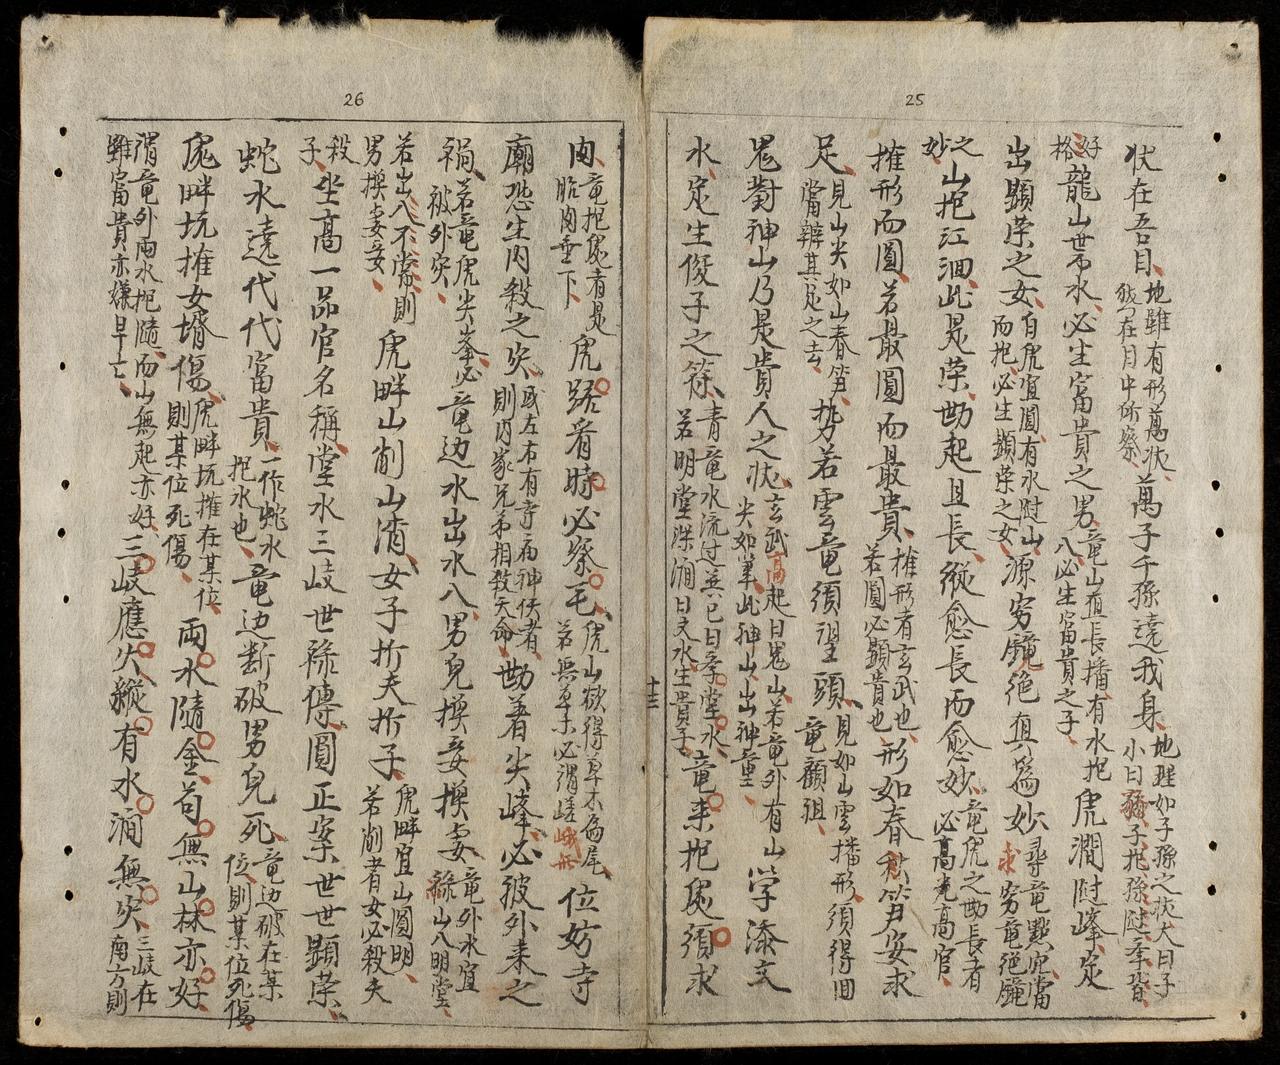 25
狀在吾目地雖有形萬狀在目中所察萬子千孫遶我身地理如子孫之狀大曰子小曰孫子抱孫
好格龍山帶水必生富貴之男竜山直長播有水抱八必生富貴之子虎澗陡峰定
出顯荣之女白虎宜圓有水陡山而抱必生顯荣之女源穷鏡絶直爲妙尋竜點穴當求穷竜絶鏡
之妙山抱江洄此是荣勘起且長縱愈長而愈妙竜虎之勘長者必高高官
擁形而圓若最圓而最貴擁形者玄武也若圓必顯貴也形如春笋安求
足見山尖如山春笋當辨其足之去势若雲竜須望頭見如山雲播形須得回竜顧祖
鬼對神山乃是貴人之状玄武高起曰鬼山若竜外有山尖如筆此神山出神童学添文
水定生俊子之筞青竜水流过若明堂深澗曰文水生貴子竜来抱穴須求
十三
26
肉竜抱穴者是胎肉垂下虎踞脊時必察毛虎山欲得草木為尾若無草木必謂嵯峨形位妨寺
廟恐生内殺之灾或左右有寺廟神伏者則内家兄弟相殺夭命勘着尖峰必被外来之
禍若竜虎尖峯必被外灾竜边水出水八男兒換妾換妻竜外水宜緣山八明堂
若出八不常則男換妻妾虎畔山削山渚女子折夫折子虎畔宜山圓明若削者女必殺夫
殺子坐高一品官名稱堂水三岐世祿傳圓正案世世顯荣
蛇水遶代代富貴一作蛇水抱水也竜边断破男兒死竜边破在某位則某位死傷
虎畔坑擁女壻傷虎畔坑擁在某位則某位死傷兩水隨金苟無山林亦好
謂竜外兩水抱隨而山無起亦好雖富貴亦嫌早亡三岐應火縱有水澗無灾三岐在南方則